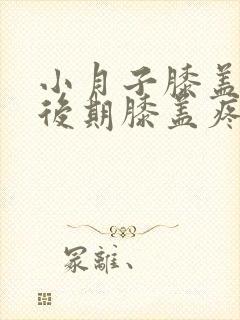 小月子膝盖
後期膝盖疼
冢離、